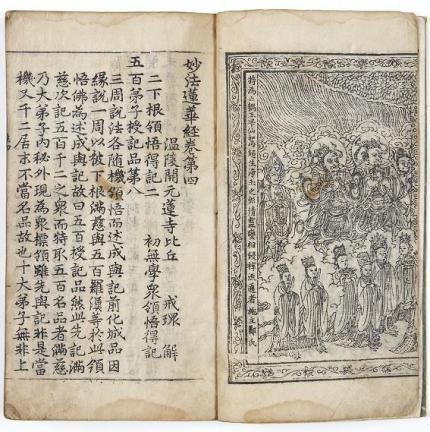 妙法蓮華經卷第四
温陵開元蓮寺比丘 戒環 解
二下根領悟得記二 初無學衆領悟得記
五百弟子授記品第八
三周說法各随機領悟而述成與記前化城品因
緣說一周以下根滿慈與五百羅漢等於此領
悟佛為述成與記故曰五百授記品然此先記滿
慈次記五百千二之衆而特取五百名品者滿慈
乃大弟子內秘外現為衆標領雖先與記非是當
機又千二居不當名品故也十大弟子無非上